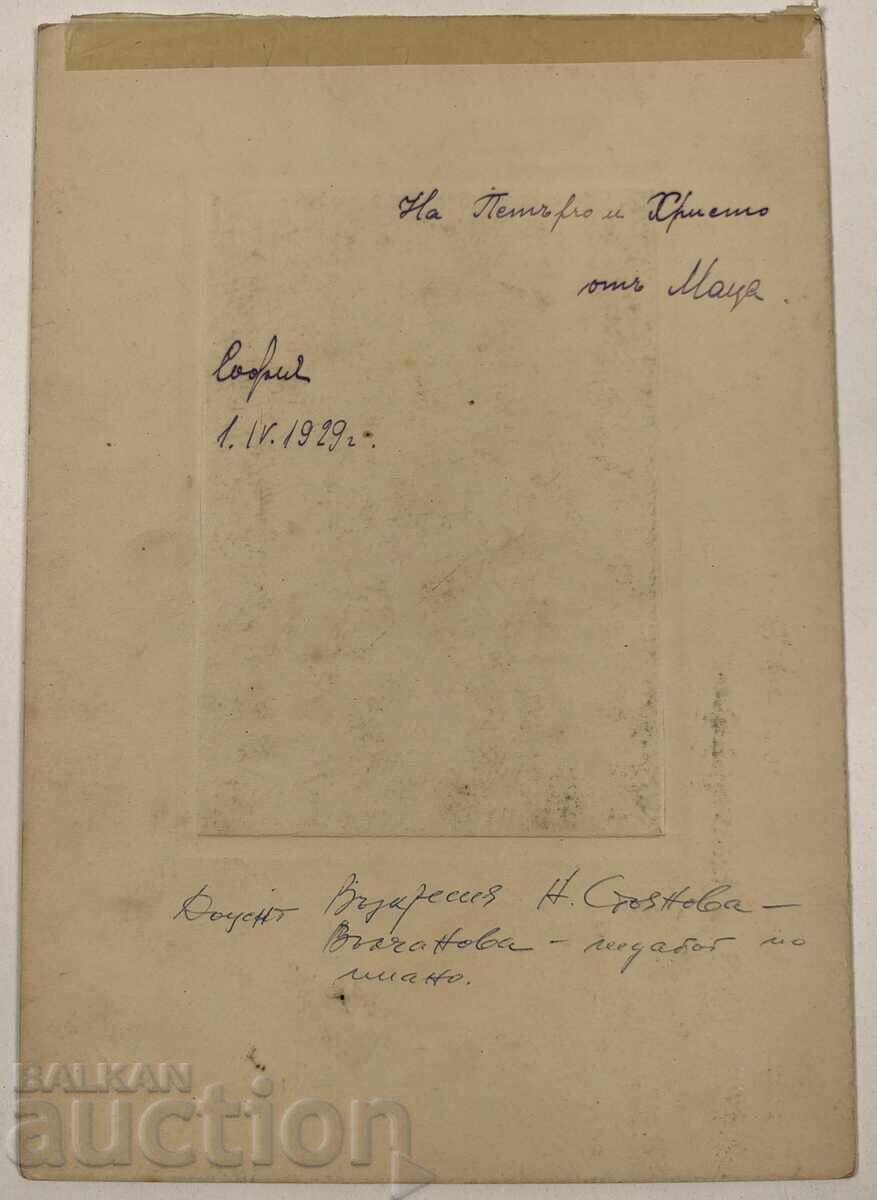 На Петърчо и Христо
отъ Маца.
София
1.IV.1929 г.
Доцент Н. Стоянова –
Вълчанова – педагог по
пиано.
BALKAN
auction